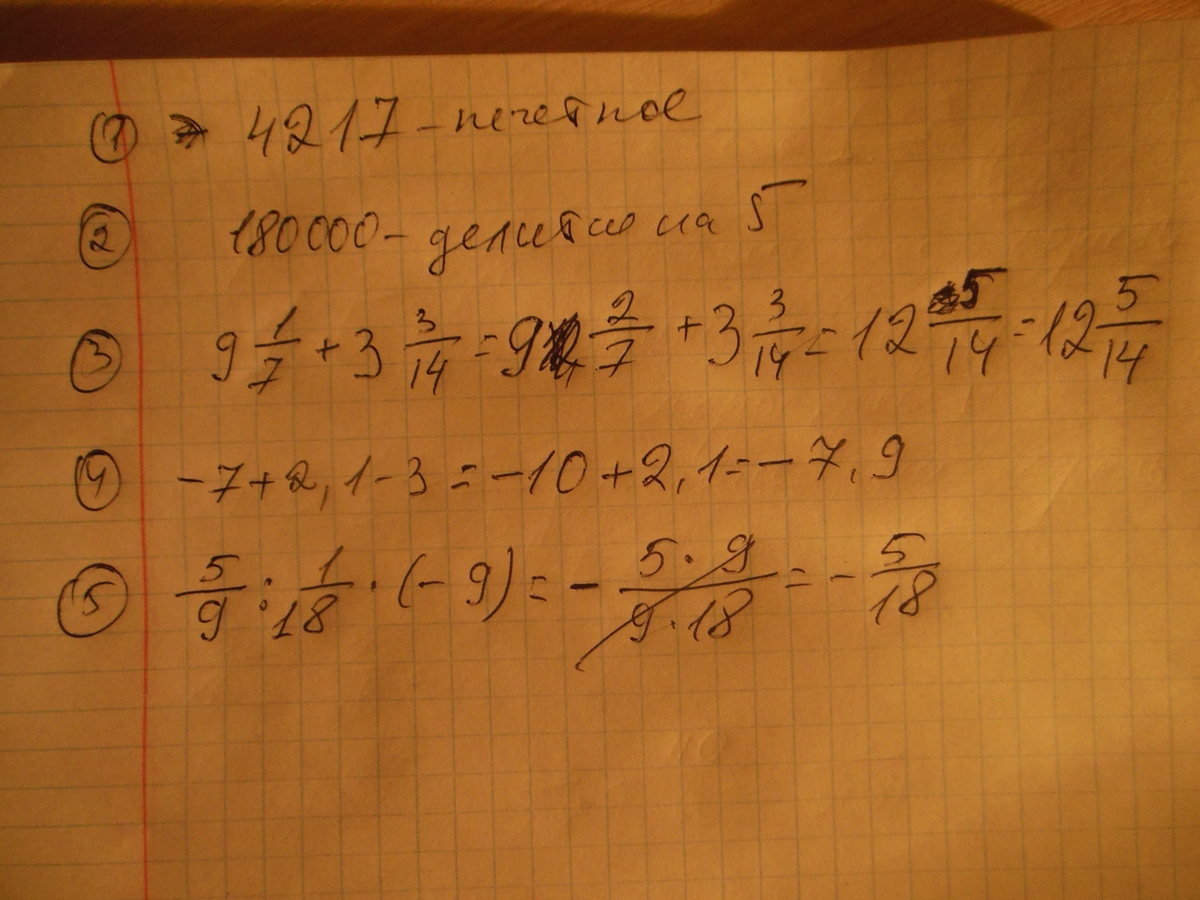 ① 4217 - нечетное
② 180000 - делится на 5
③ 9 1/7 + 3 3/14 = 9 2/7 + 3 3/14 = 12 5/14 = 12 5/14
④ -7+2,1-3 = -10+2,1 = -7,9
⑤ 5/9 : 1/18 · (-9) = - 5·9/9·18 = - 5/18